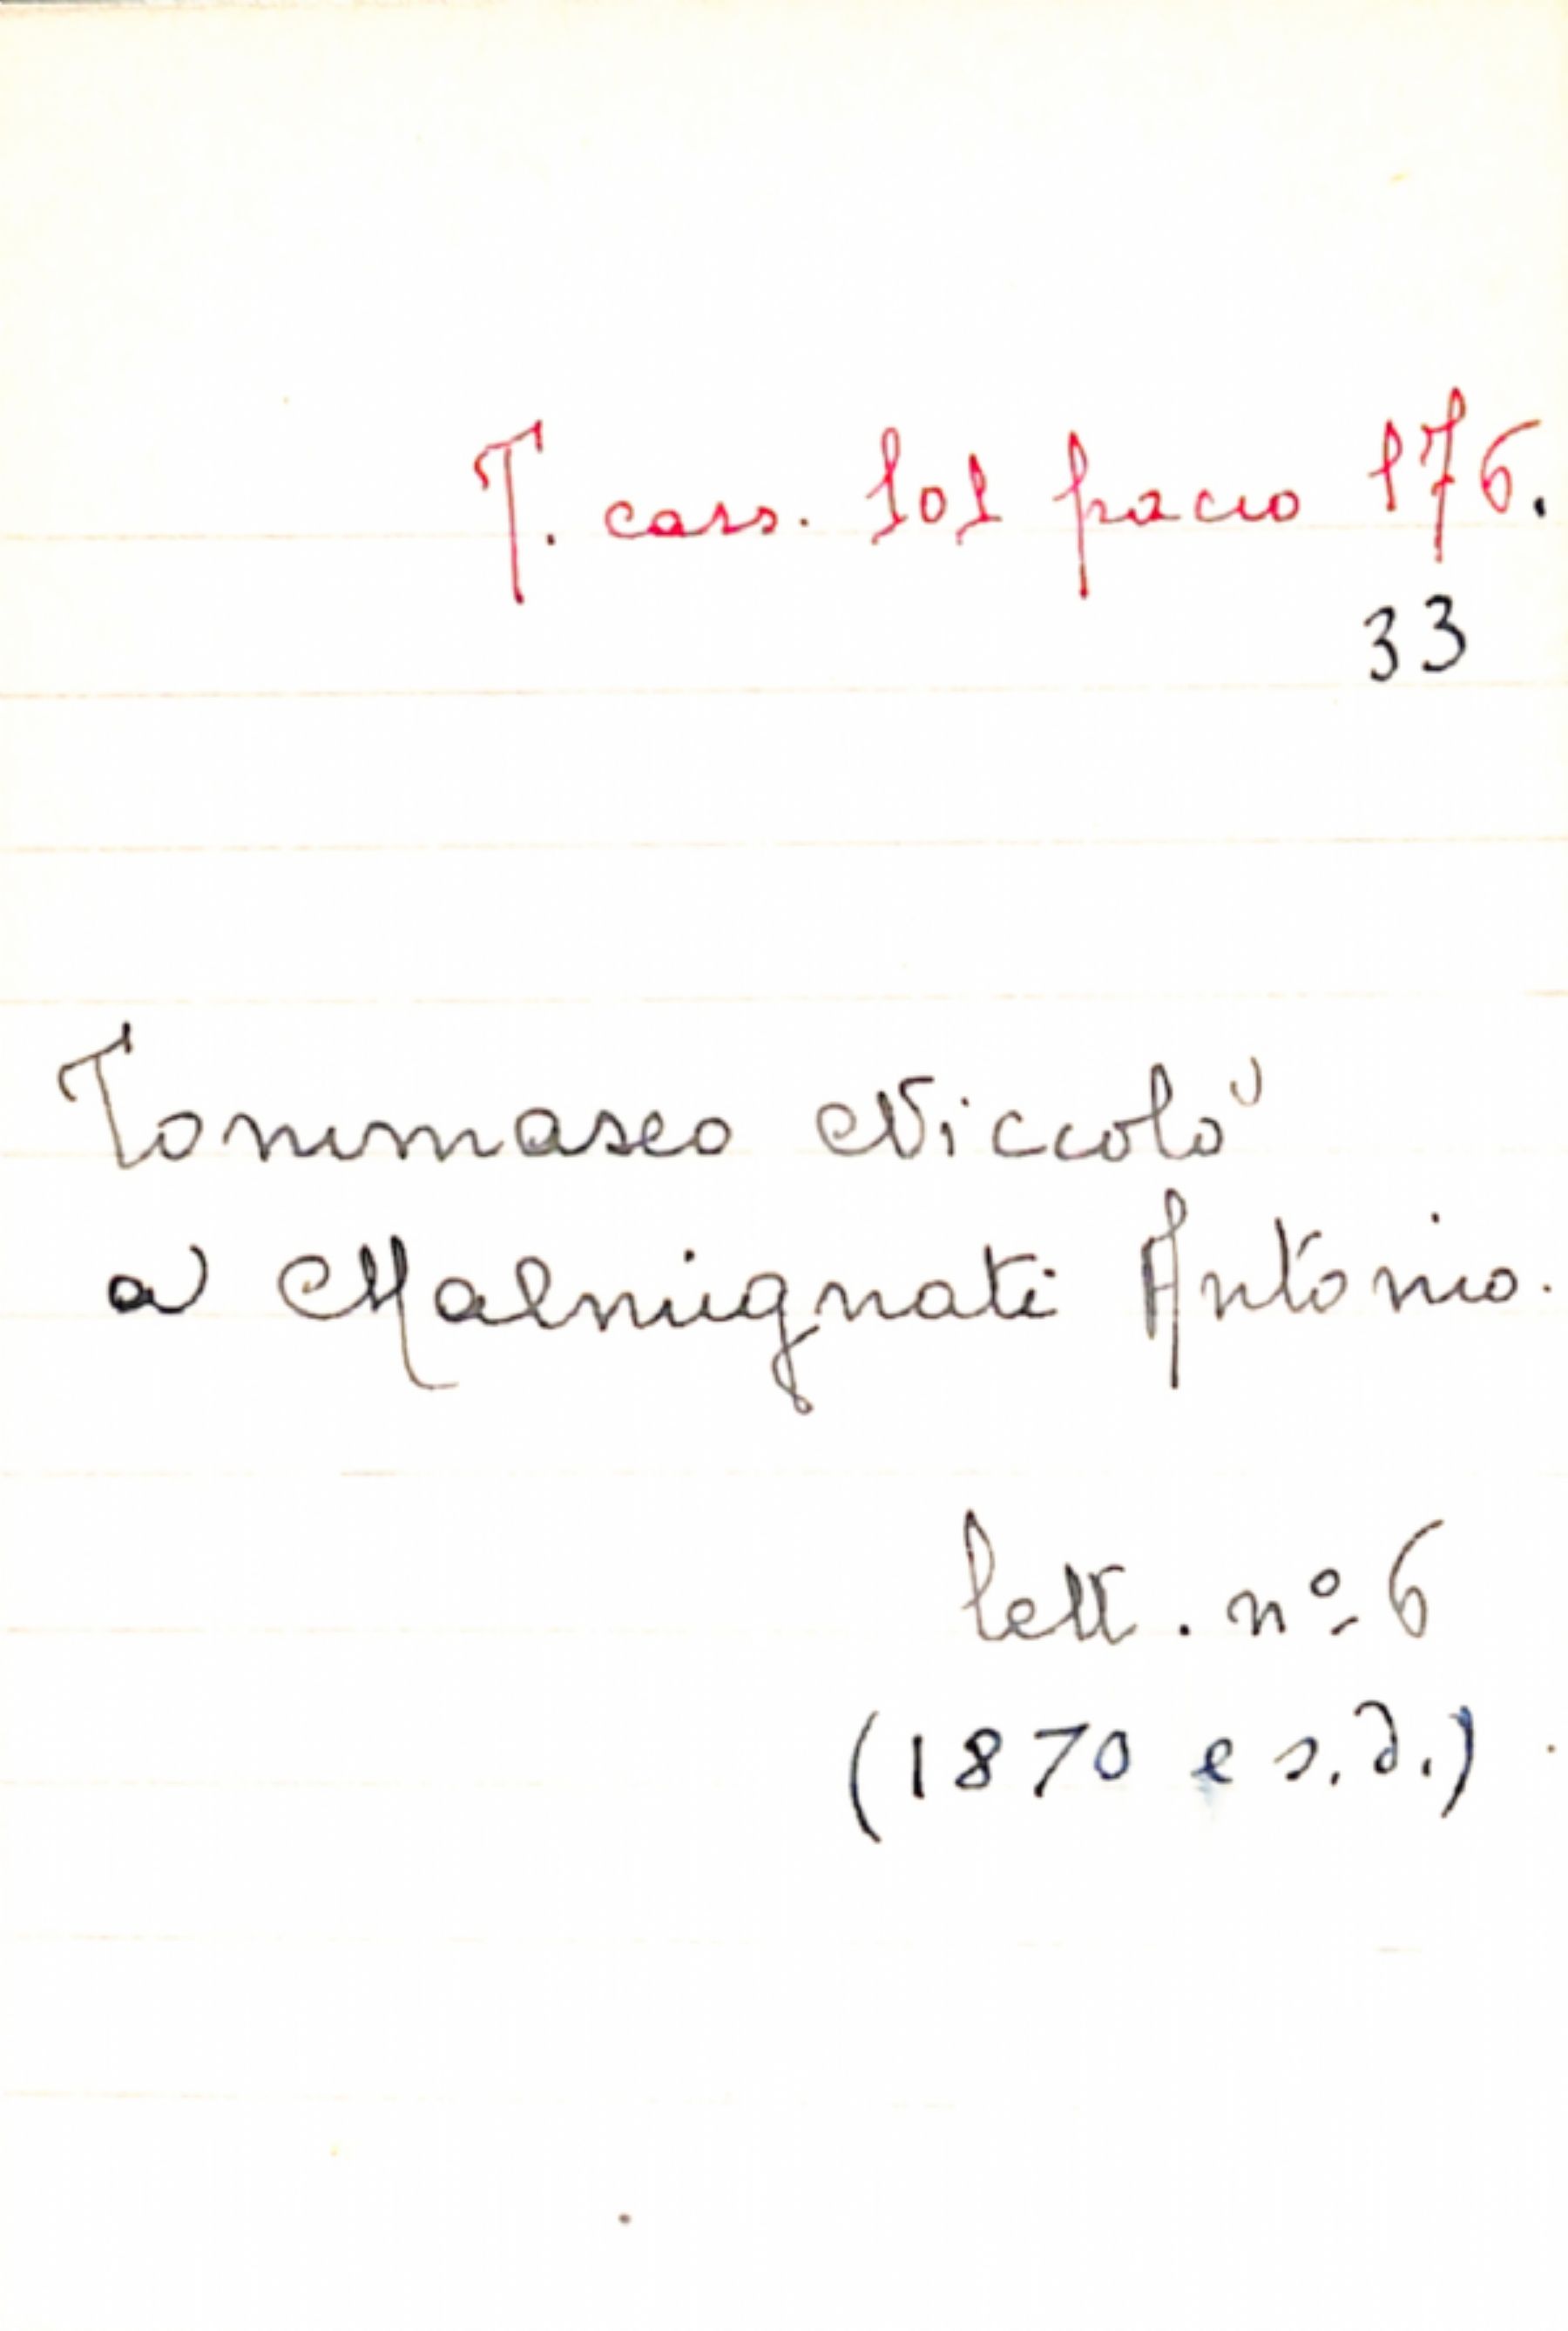 T. cass. 101 pacco 176.
33
Tommaseo Niccolò
a Malmignati Antonio.
lett. nº 6
(1870 e s.d.)